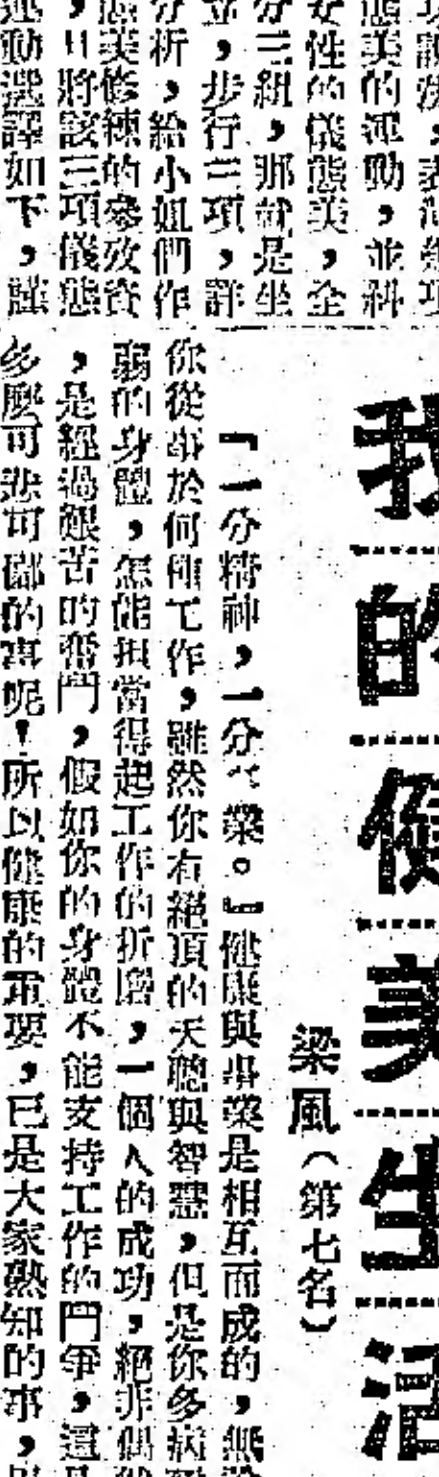 功
態美的運動，並糾
女性的儀態美，全
分三組，那就是坐
立，步行三項，詳
分析，給小姐們作
態美修練的參攷資
，且將該三項儀態
運動選譯如下，謹
我的健美生活
梁風（第七名）
「一分精神，一分事業。」健康與事業是相互而成的，無
你從事於何種工作，雖然你有絕頂的天聰與智慧，但是你多病
弱的身體，怎能担當得起工作的折磨，一個人的成功，絕非偶
，是經過艱苦的奮鬥，假如你的身體不能支持工作的鬥爭，這
多麼可悲可憐的事呢！所以健康的重要，已是大家熟知的事，